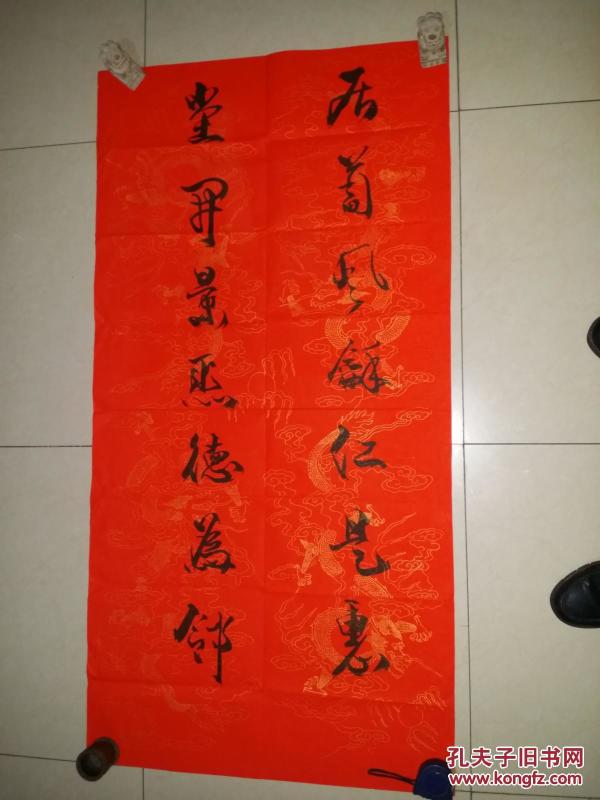 居風龢仁是惠
堂開景德為鄰
孔夫子旧书网
www.kongfz.com